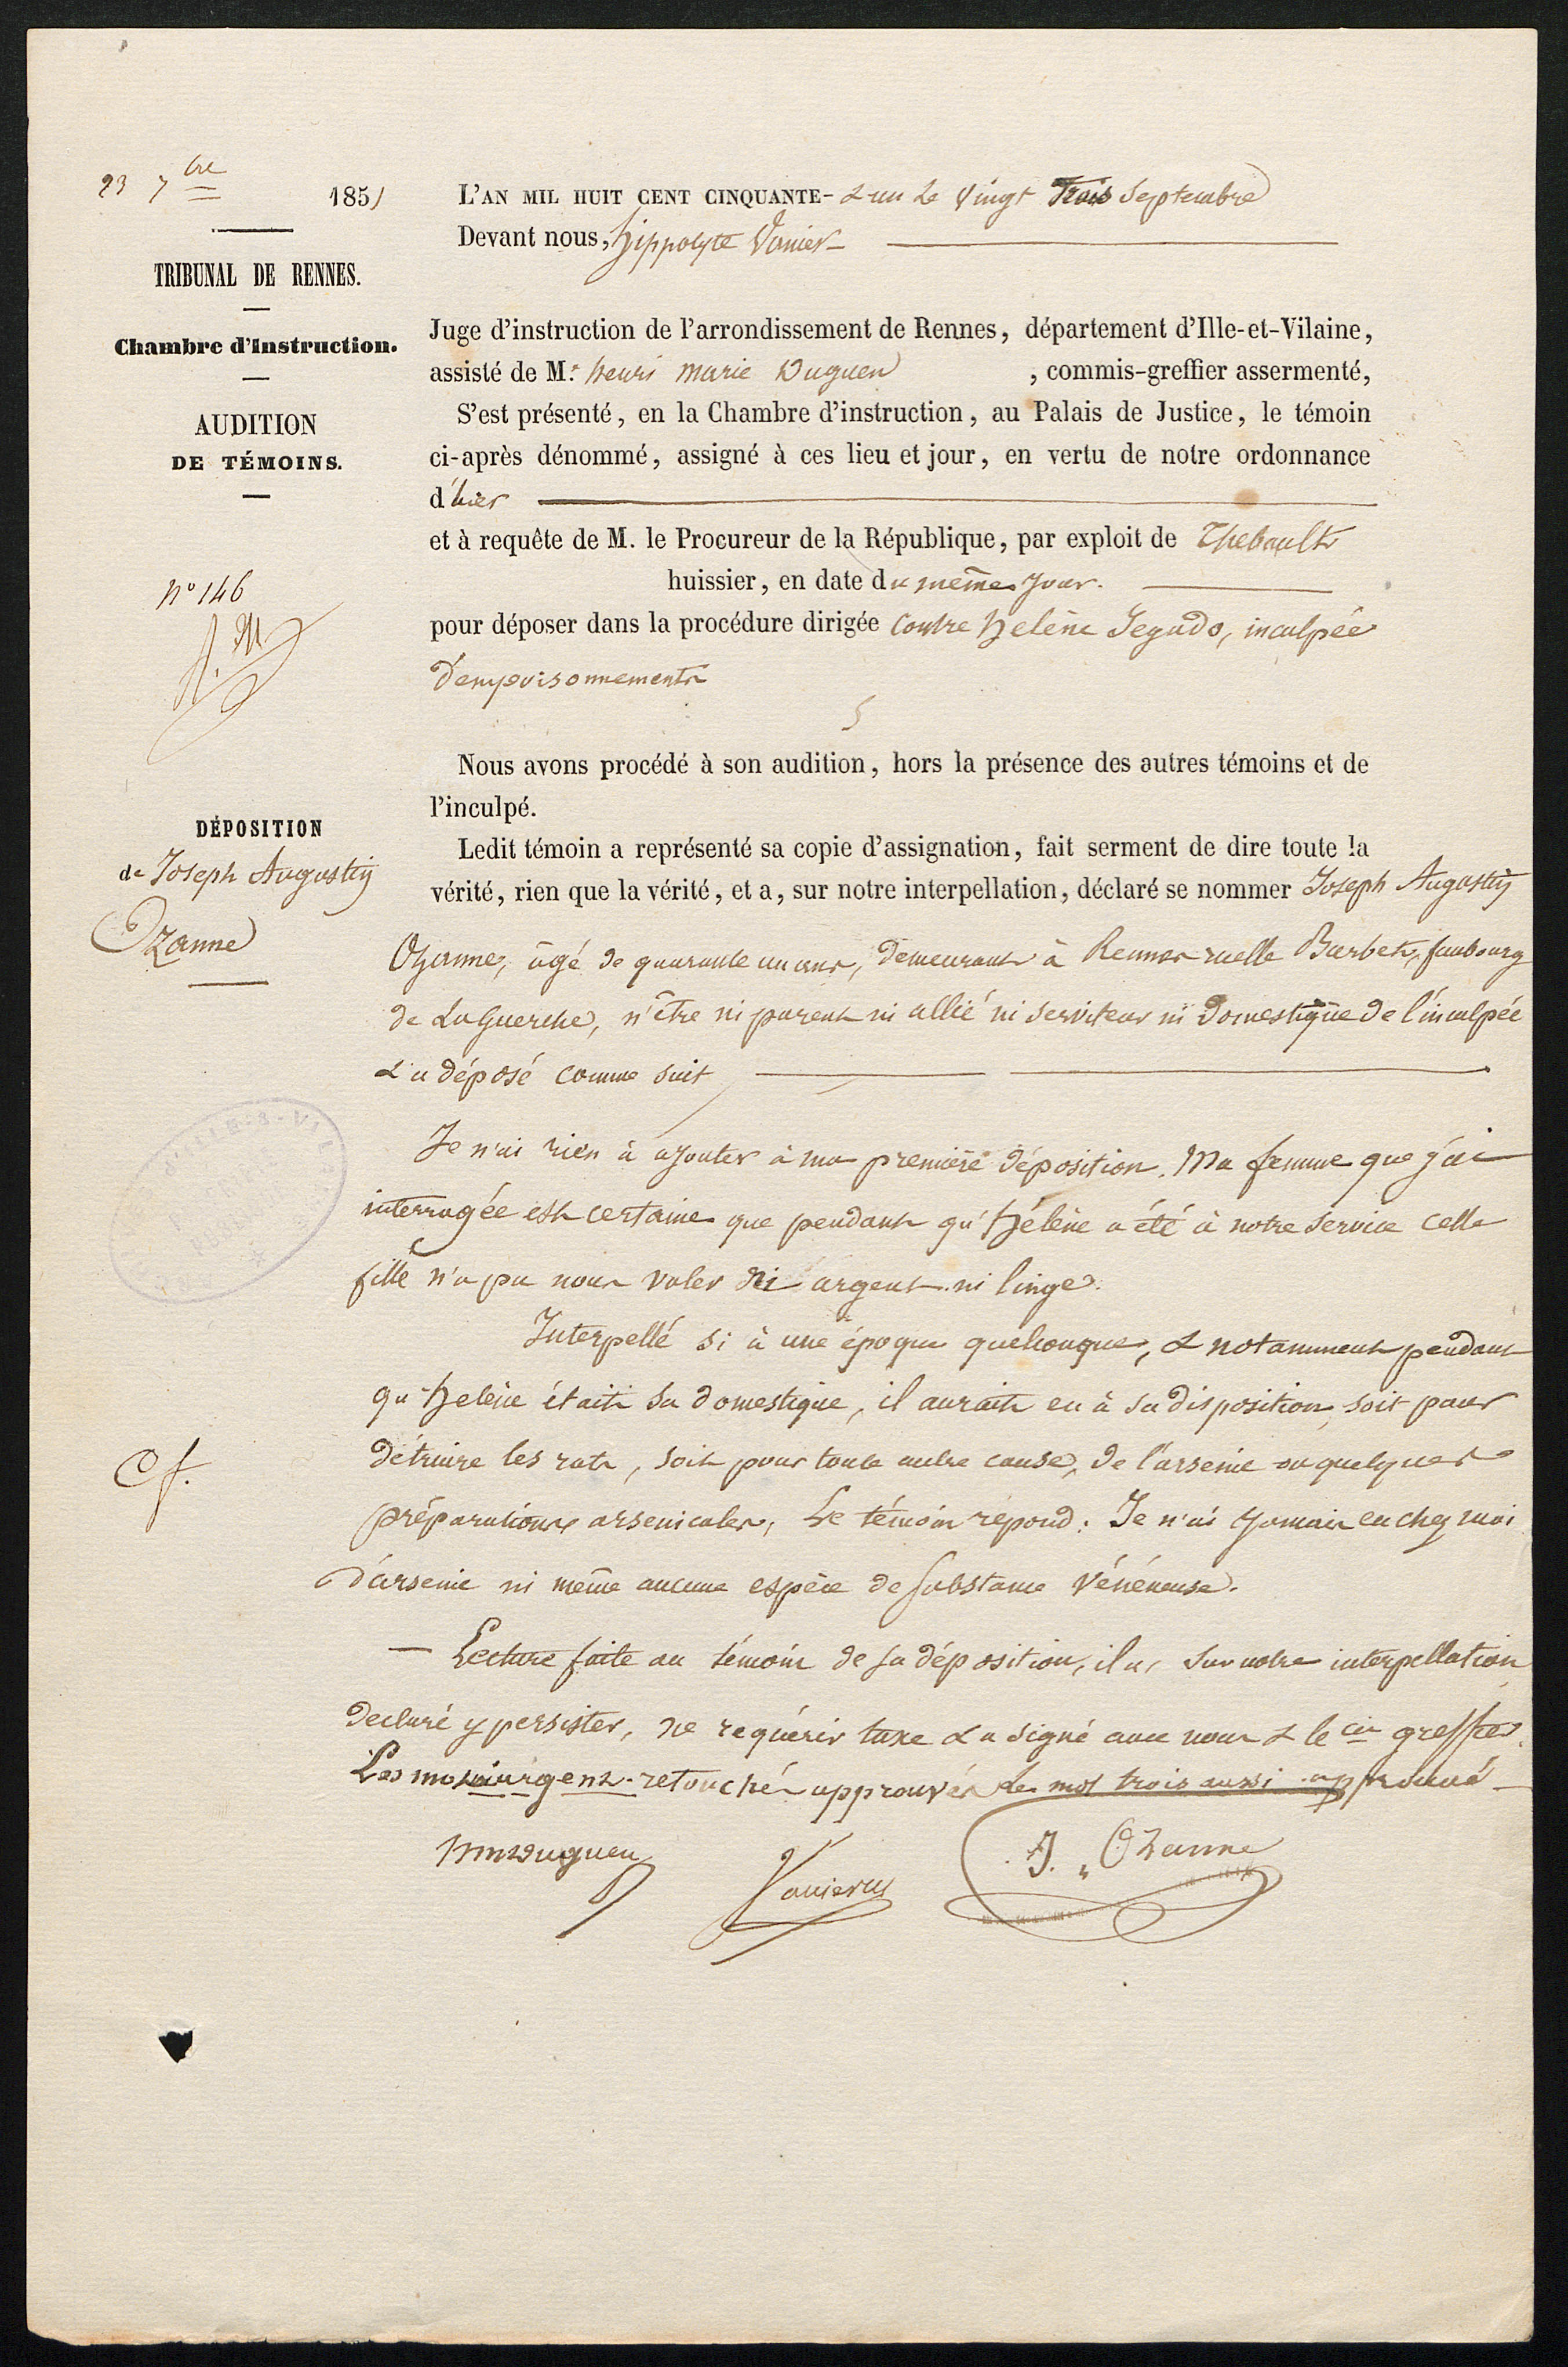 23 7bre 1851
TRIBUNAL DE RENNES.
Chambre d'Instruction.
AUDITION
DE TÉMOINS.
N° 146
DÉPOSITION
de Joseph Augustin
Ozanne
Cf.
L'AN MIL HUIT CENT CINQUANTE- & un Le Vingt Trois Septembre
Devant nous, Hippolyte Vanier
Juge d'instruction de l'arrondissement de Rennes, département d'Ille-et-Vilaine,
assisté de Mr. henri marie Duguen , commis-greffier assermenté,
S'est présenté, en la Chambre d'instruction, au Palais de Justice, le témoin
ci-après dénommé, assigné à ces lieu et jour, en vertu de notre ordonnance
d'hier
et à requête de M. le Procureur de la République, par exploit de Thebault
huissier, en date du même jour.
pour déposer dans la procédure dirigée contre Helène Jegado, inculpée
d'empoisonnement
Nous avons procédé à son audition, hors la présence des autres témoins et de
l'inculpé.
Ledit témoin a représenté sa copie d'assignation, fait serment de dire toute la
vérité, rien que la vérité, et a, sur notre interpellation, déclaré se nommer Joseph Augustin
Ozanne, âgé de quarante un ans, demeurant à Rennes ruelle Barbet, faubourg
de La Guerche, n'être ni parent ni allié ni serviteur ni domestique de l'inculpée
& a déposé comme suit
Je n'ai rien à ajouter à ma première déposition. Ma femme que j'ai
interrogée est certaine que pendant qu'Hélène a été à notre service cette
fille n'a pu nous voler ni argent ni linge.
Interpellé si à une époque quelconque, & notamment pendant
qu'Helène était sa domestique, il aurait eu à sa disposition, soit pour
détruire les rats, soit pour toute autre cause, de l'arsenic ou quelques
préparations arsenicales, Le témoin répond: Je n'ai jamais eu chez moi
d'arsenic ni même aucune espèce de substance vénéneuse.
— Lecture faite au témoin de sa déposition, il a, sur notre interpellation
declaré y persister, ne requérir taxe & a signé avec nous & le cis greffier.
Les mots ni argent retouchés approuvés Le mot trois aussi approuvé
hmDuguen
Vanier
J. Ozanne